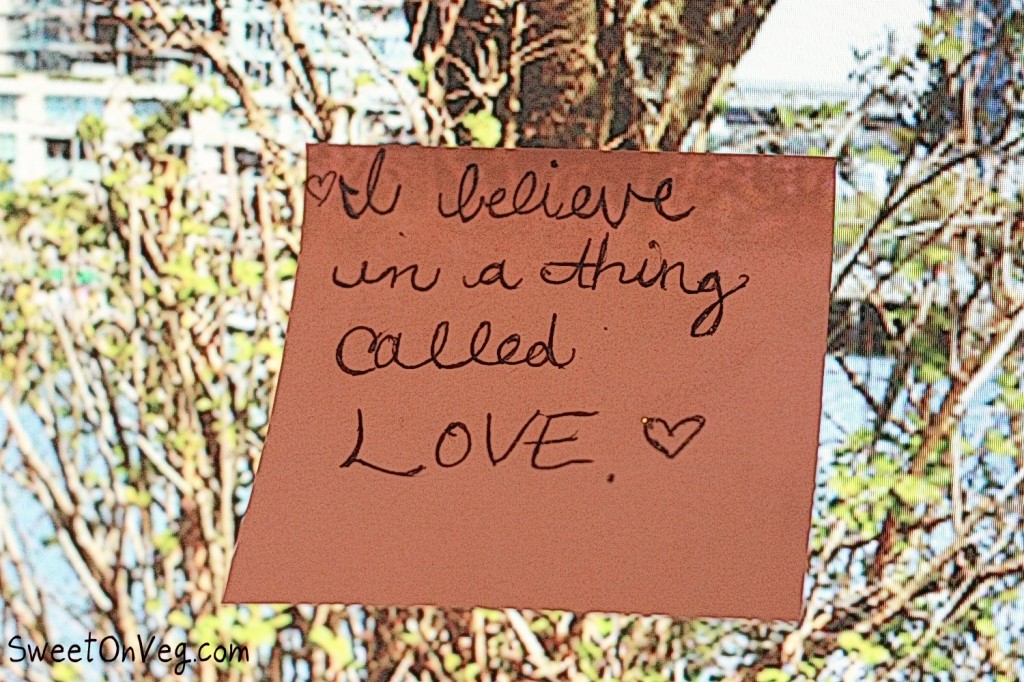 ♡I believe
in a thing
called
LOVE. ♡
SweetOnVeg.com